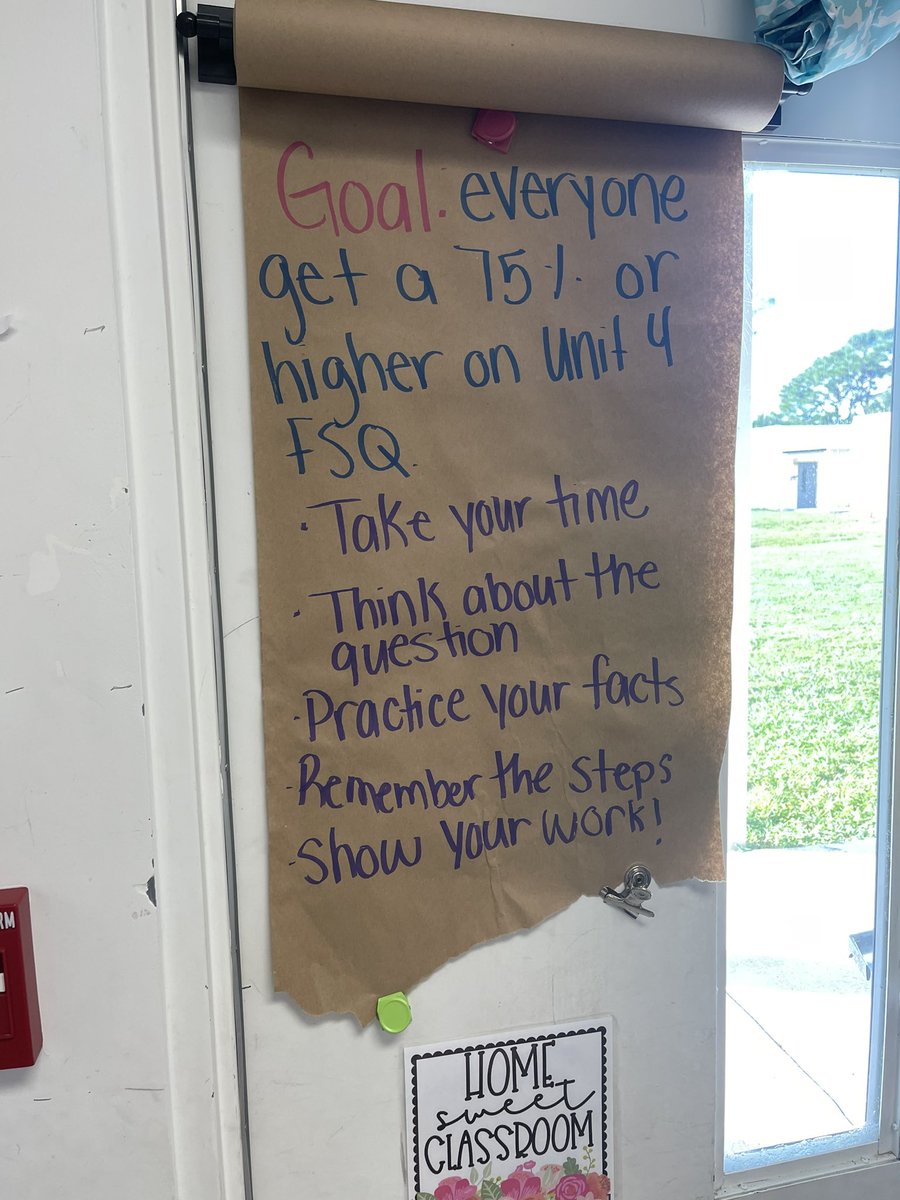 Goal: everyone
get a 75% or
higher on Unit 4
FSQ.
· Take your time
· Think about the
question
· Practice your facts
· Remember the steps
· Show your work!
RM
HOME
sweet
CLASSROOM